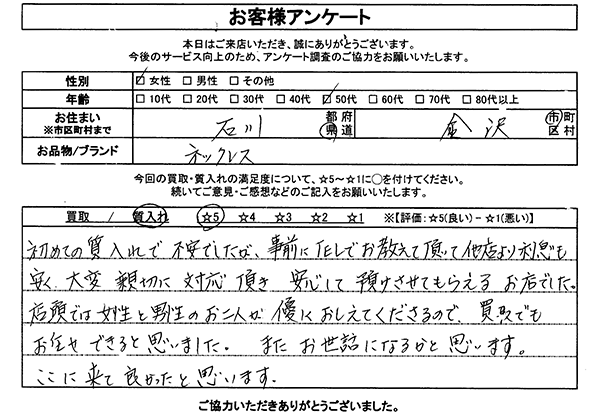 お客様アンケート
本日はご来店いただき、誠にありがとうございます。
今後のサービス向上のため、アンケート調査のご協力をお願いいたします。
性別 ☑女性 □男性 □その他
年齢 □10代 □20代 □30代 □40代 ☑50代 □60代 □70代 □80代以上
お住まい ※市区町村まで 石川 都府県道 金沢 市町区村
お品物/ブランド ネックレス
今回の買取・質入れの満足度について、☆5～☆1に○を付けてください。
続いてご意見・ご感想などのご記入をお願いいたします。
買取 / 質入れ ☆5 ☆4 ☆3 ☆2 ☆1 ※【評価:☆5(良い)-☆1(悪い)】
初めての質入れで不安でしたが、事前にTELでお教えて頂って他店より利息も
安く、大変親切に対応頂き 安心して預けさせてもらえるお店でした。
店頭では女性と男性のお二人が優しくおしえてくださるので、買取でも
お任せできると思いました。 またお世話になるかと思います。
ここに来て良かったと思います.
ご協力いただきありがとうございました。